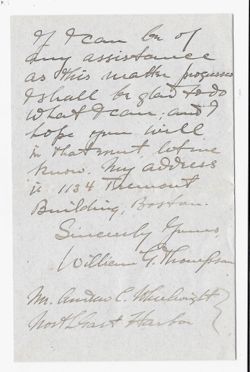 If I can be of
any assistance
as this matter progresses
I shall be glad to do
what I can, and I
hope you will,
in that event, let me
know. My address
is 1134 Tremont
Building, Boston.
Sincerely Yours,
William G. Thompson
Mr. Andrew C. Wheelwright
North East Harbor